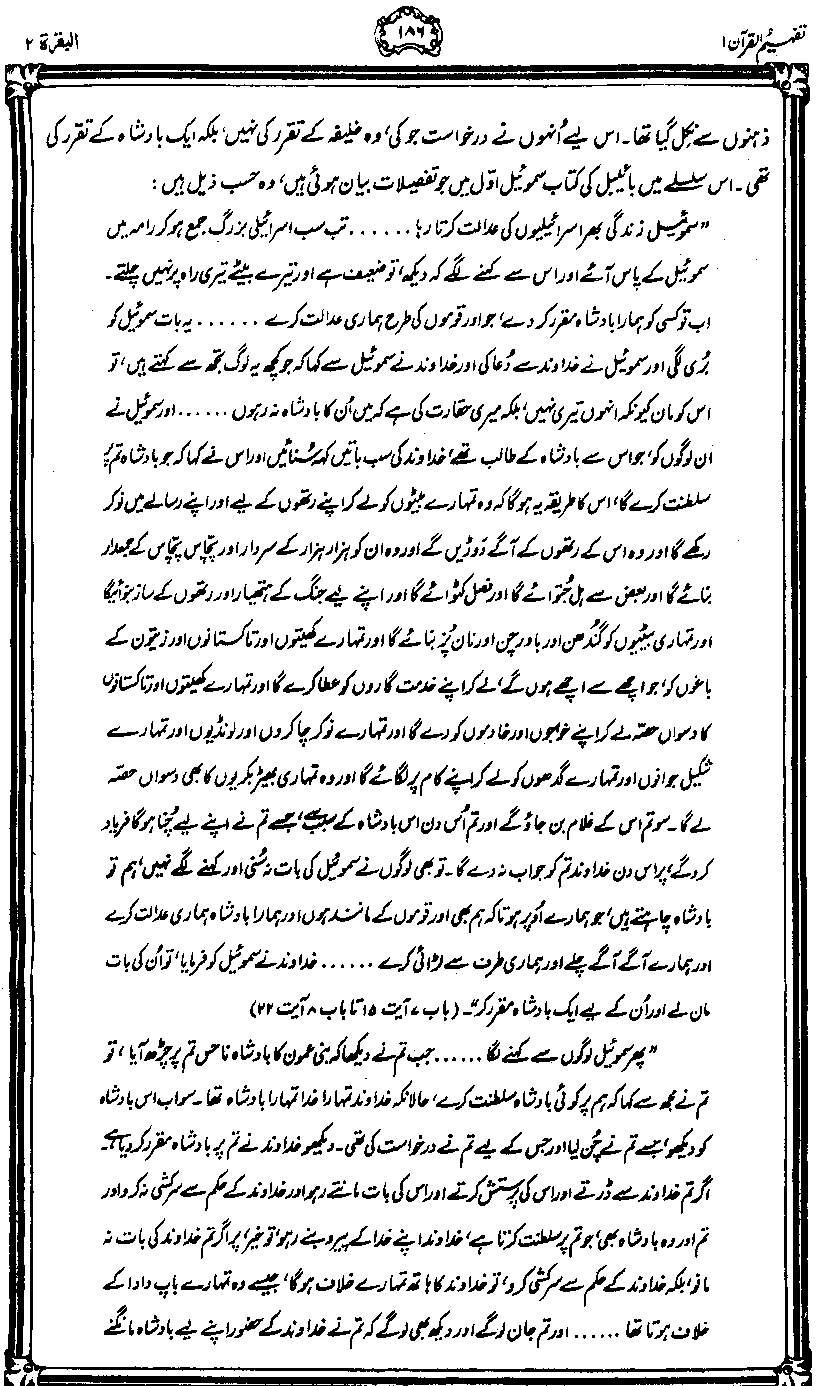 تفہیم القرآن ۱
۱۸۶
البقرۃ ۲
ذہنوں سے نکل گیا تھا۔ اس لیے اُنھوں نے درخواست جو کی، وہ خلیفہ کے تقرر کی نہیں، بلکہ ایک بادشاہ کے تقرر کی
تھی۔ اس سلسلے میں بائیبل کی کتاب سموئیل اوّل میں جو تفصیلات بیان ہوئی ہیں، وہ حسب ذیل ہیں:
”سموئیل زندگی بھر اسرائیلیوں کی عدالت کرتا رہا ...... تب سب اسرائیلی بزرگ جمع ہو کر رامہ میں
سموئیل کے پاس آئے اور اس سے کہنے لگے کہ دیکھ، تو ضعیف ہے اور تیرے بیٹے تیری راہ پر نہیں چلتے۔
اب تو کسی کو ہمارا بادشاہ مقرر کر دے، جو اور قوموں کی طرح ہماری عدالت کرے ...... یہ بات سموئیل کو
بُری لگی اور سموئیل نے خداوند سے دُعا کی اور خداوند نے سموئیل سے کہا کہ جو کچھ یہ لوگ تجھ سے کہتے ہیں، تو
اس کو مان کیونکہ انہوں تیری نہیں، بلکہ میری حقارت کی ہے کہ میں اُن کا بادشاہ نہ رہوں ...... اور سموئیل نے
ان لوگوں کو، جو اس سے بادشاہ کے طالب تھے، خداوند کی سب باتیں کہہ سُنائیں اور اس نے کہا کہ جو بادشاہ تم پر
سلطنت کرے گا، اس کا طریقہ یہ ہو گا کہ وہ تمہارے بیٹوں کو لے کر اپنے رتھوں کے لیے اور اپنے رسالے میں نوکر
رکھے گا اور وہ اس کے رتھوں کے آگے دَوڑیں گے اور وہ ان کو ہزار ہزار کے سردار اور پچاس پچاس کے جمعدار
بنائے گا اور بعض سے ہل جُتوائے گا اور فصل کٹوائے گا اور اپنے لیے جنگ کے ہتھیار اور رتھوں کے ساز بنوائیگا
اور تمہاری بیٹیوں کو گُندھن اور باورچن اور نان پُز بنائے گا اور تمہارے کھیتوں اور تاکستانوں اور زیتون کے
باغوں کو، جو اچھے سے اچھے ہوں گے، لے کر اپنے خدمت گاروں کو عطا کرے گا اور تمہارے کھیتوں اور تاکستانوں
کا دسواں حصّہ لے کر اپنے خوجوں اور خادموں کو دے گا اور تمہارے نوکر چاکروں اور لونڈیوں اور تمہارے
شکیل جوانوں اور تمہارے گدھوں کو لے کر اپنے کام پر لگائے گا اور وہ تمہاری بھیڑ بکریوں کا بھی دسواں حصّہ
لے گا۔ سو تم اس کے غلام بن جاؤ گے اور تم اُس دن اس بادشاہ کے سبب سے، جسے تم نے اپنے لیے چُنا ہو گا فریاد
کرو گے، پر اس دن خداوند تم کو جواب نہ دے گا۔ تو بھی لوگوں نے سموئیل کی بات نہ سُنی اور کہنے لگے نہیں، ہم تو
بادشاہ چاہتے ہیں، جو ہمارے اُوپر ہو تاکہ ہم بھی اور قوموں کے مانند ہوں اور ہمارا بادشاہ ہماری عدالت کرے
اور ہمارے آگے آگے چلے اور ہماری طرف سے لڑائی کرے ...... خداوند نے سموئیل کو فرمایا، تو اُن کی بات
مان لے اور اُن کے لیے ایک بادشاہ مقرر کر“۔ (باب ۷ آیت ۱۵ تا باب ۸ آیت ۲۲)
”پھر سموئیل لوگوں سے کہنے لگا ...... جب تم نے دیکھا کہ بنی عمون کا بادشاہ ناحس تم پر چڑھ آیا، تو
تم نے مجھ سے کہا کہ ہم پر کوئی بادشاہ سلطنت کرے، حالانکہ خداوند تمہارا خدا تمہارا بادشاہ تھا۔ سو اب اس بادشاہ
کو دیکھو، جسے تم نے چُن لیا اور جس کے لیے تم نے درخواست کی تھی۔ دیکھو خداوند نے تم پر بادشاہ مقرر کر دیا ہے۔
اگر تم خداوند سے ڈرتے اور اس کی پرستش کرتے اور اس کی بات مانتے رہو اور خداوند کے حکم سے سرکشی نہ کرو اور
تم اور وہ بادشاہ بھی، جو تم پر سلطنت کرتا ہے، خداوند اپنے خدا کے پیرو بنے رہو، تو خیر، پر اگر تم خداوند کی بات نہ
مانو، بلکہ خداوند کے حکم سے سرکشی کرو، تو خداوند کا ہاتھ تمہارے خلاف ہو گا، جیسے وہ تمہارے باپ دادا کے
خلاف ہوتا تھا ...... اور تم جان لو گے اور دیکھ بھی لو گے کہ تم نے خداوند کے حضور اپنے لیے بادشاہ مانگنے